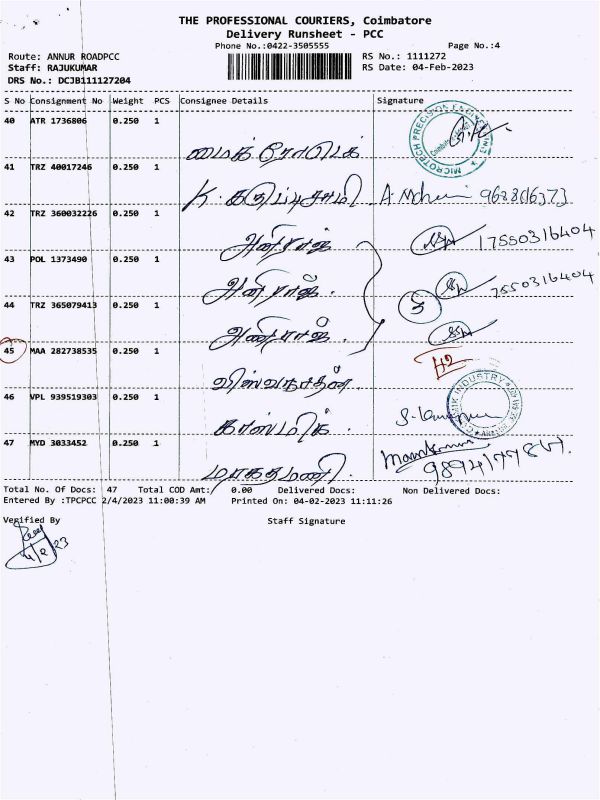 THE PROFESSIONAL COURIERS, Coimbatore
Delivery Runsheet - PCC
Phone No.:0422-3505555
Page No.:4
Route: ANNUR ROADPCC
RS No.: 1111272
Staff: RAJUKUMAR
RS Date: 04-Feb-2023
DRS No.: DCJB111127204
S No Consignment No Weight PCS Consignee Details Signature
40 ATR 1736806 0.250 1
41 TRZ 40017246 0.250 1
K. கருப்புசாமி
42 TRZ 360032226 0.250 1
17550316404
43 POL 1373490 0.250 1
7550316404
44 TRZ 365079413 0.250 1
45 MAA 282738535 0.250 1
விஸ்வநாதன்
46 VPL 939519303 0.250 1
47 MYD 3033452 0.250 1
Total No. Of Docs: 47 Total COD Amt: 0.00 Delivered Docs: Non Delivered Docs:
Entered By :TPCPCC 2/4/2023 11:00:39 AM Printed On: 04-02-2023 11:11:26
Verified By Staff Signature
4/2/23